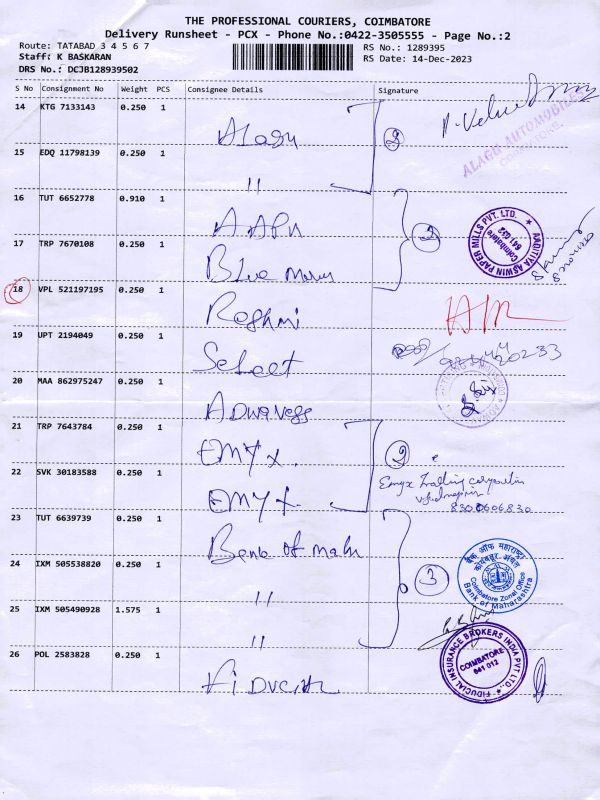 THE PROFESSIONAL COURIERS, COIMBATORE
Delivery Runsheet - PCX - Phone No.:0422-3505555 - Page No.:2
Route: TATABAD 3 4 5 6 7
RS No.: 1289395
Staff: K BASKARAN
RS Date: 14-Dec-2023
DRS No.: DCJB128939502
S No Consignment No Weight PCS Consignee Details Signature
14 KTG 7133143 0.250 1
Alagu
ALAGU AUTOMOBILES
15 EDQ 11798139 0.250 1
"
16 TUT 6652778 0.910 1
AADITYA ASWIN PAPER MILLS PVT. LTD.
Coimbatore
641 022
17 TRP 7670108 0.250 1
18 VPL 521197195 0.250 1
Reshmi
19 UPT 2194049 0.250 1
Select
20 MAA 862975247 0.250 1
21 TRP 7643784 0.250 1
EMYX.
2
22 SVK 30183588 0.250 1
EMYX
Emyx Trading corporation
23 TUT 6639739 0.250 1
Bank of Mah
24 IXM 505538820 0.250 1
"
3
बैंक ऑफ महाराष्ट्र
Coimbatore Zonal Office
Bank of Maharashtra
25 IXM 505490928 1.575 1
"
26 POL 2583828 0.250 1
FIDUCIAL INSURANCE BROKERS INDIA PVT LTD.
COIMBATORE
641 012